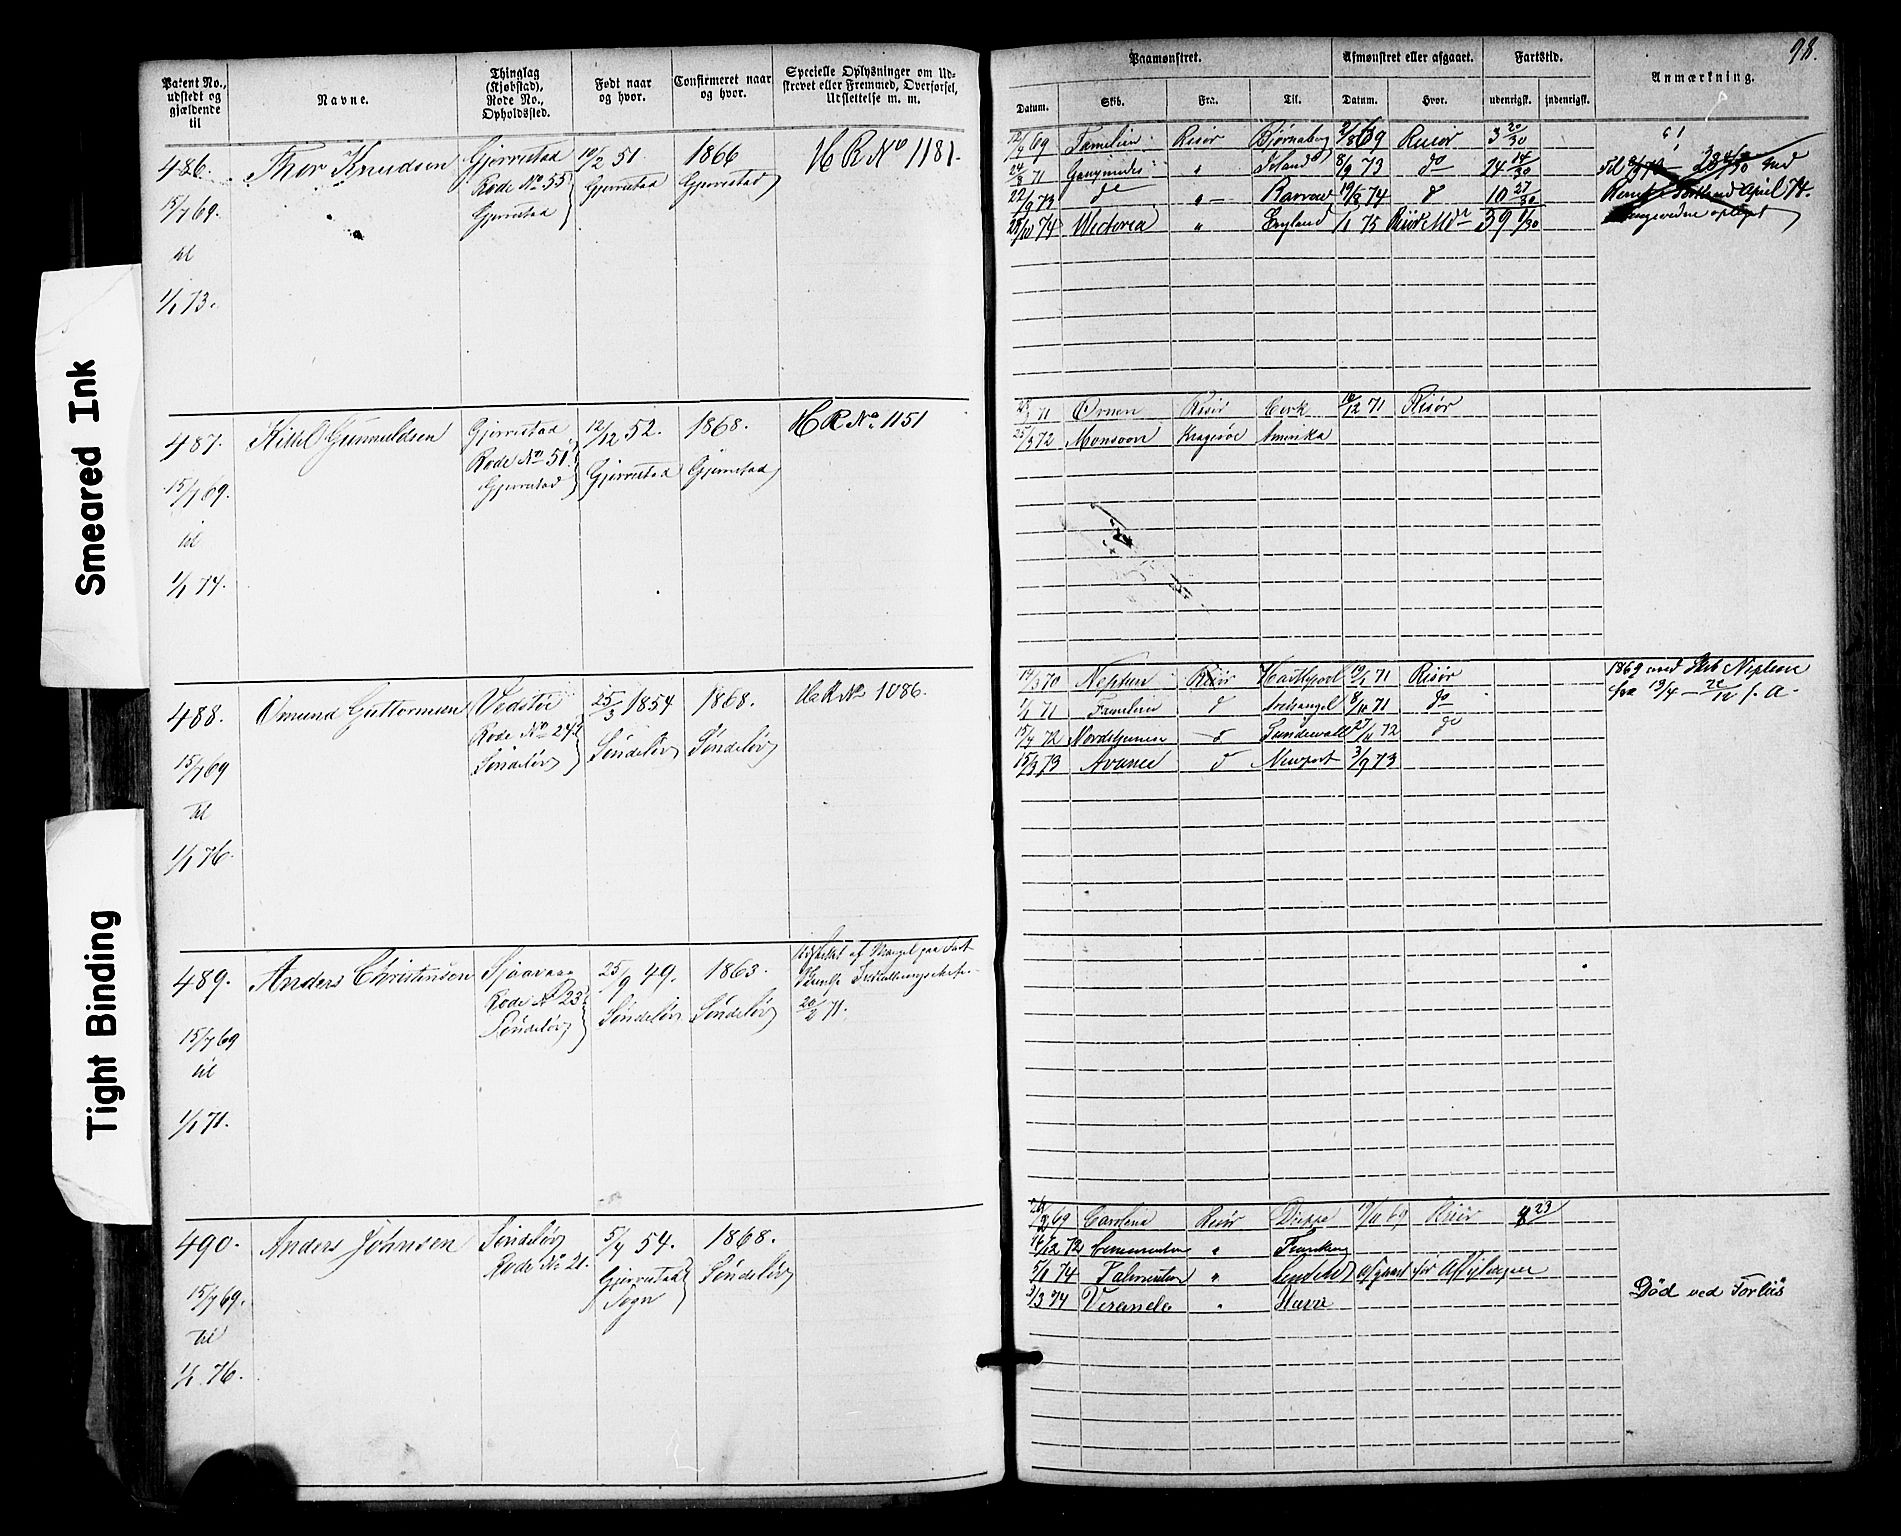 98.
Smeared Ink
Tight Binding
Patent No., udstedt og gjældende til
Navne.
Thinglag (Kjøbstad), Rode No., Opholdssted.
Født naar og hvor.
Confirmeret naar og hvor.
Specielle Oplysninger om Udskrevet eller Fremmed, Overførsel, Udslettelse m. m.
Paamønstret.
Afmønstret eller afgaaet.
Fartstid.
Anmærkning.
Datum.
Skib.
Fra.
Til.
Datum.
Hvor.
udenrigsk.
indenrigsk.
486. Thor Knudsen Gjerrestad 10/2 51 1866 H R No 1181.
Rode No 55 Gjerrestad Gjerrestad
15/7 69. Gjerrestad
til
1/1 73.
12/7 69 Familien Risør Bjørneborg 2/8 69 Risør 3 20/30
24/8 71 Ganymedes " Island 8/9 73 do 24 14/30
22/9 73 do " 19/8 74 d 10 27/30
28/10 74 Wictoria " England 1/1 75 39 1/30
April 74.
487. Kittil Gunnuldsen Gjerrestad 12/12 52. 1868. H R No 1151
Rode No 51. Gjerrestad Gjerrestad
15/7 69. Gjerrestad
til
1/1 74.
71 Ørnen Risør Cork 16/12 71 Risør
25/3 72 Monsoon Kragerøe Amerika
488. Omund Guttormsen Vedstøe 25/3 1854 1868. H R No 1086.
Rode No 242 Søndeløv Søndeløv
15/7 69 Søndeløv
til
1/1 76.
14/3 70 Neptun Risør Hartlepool 19/1 71 Risør 1869 med Skb Neptun
1/1 71 Familien d Archangel 8/11 71 do fra 13/4 – 20/12 f. A.
15/4 72 Nordstjernen d Sundsvall 27/11 72 do
15/3 73 Avance d Newport 3/9 73
489. Anders Christensen 25/9 49. 1863. Udslettet af Mangel paa Fart
Rode No 23 Søndeløv Søndeløv
Søndeløv 20/2 71.
15/7 69
til
1/1 71.
490. Anders Johnsen Søndeløv 5/4 54. 1868.
Rode No 21. Gjerrestad Søndeløv
Sogn
15/7 69.
til
1/1 76.
69 Carolina Risør Dieppe 17/11 69 Risør 8 23
14/12 72 "
5/1 74 " afgaaet før
3/3 74 " Havre
Død ved Forliis